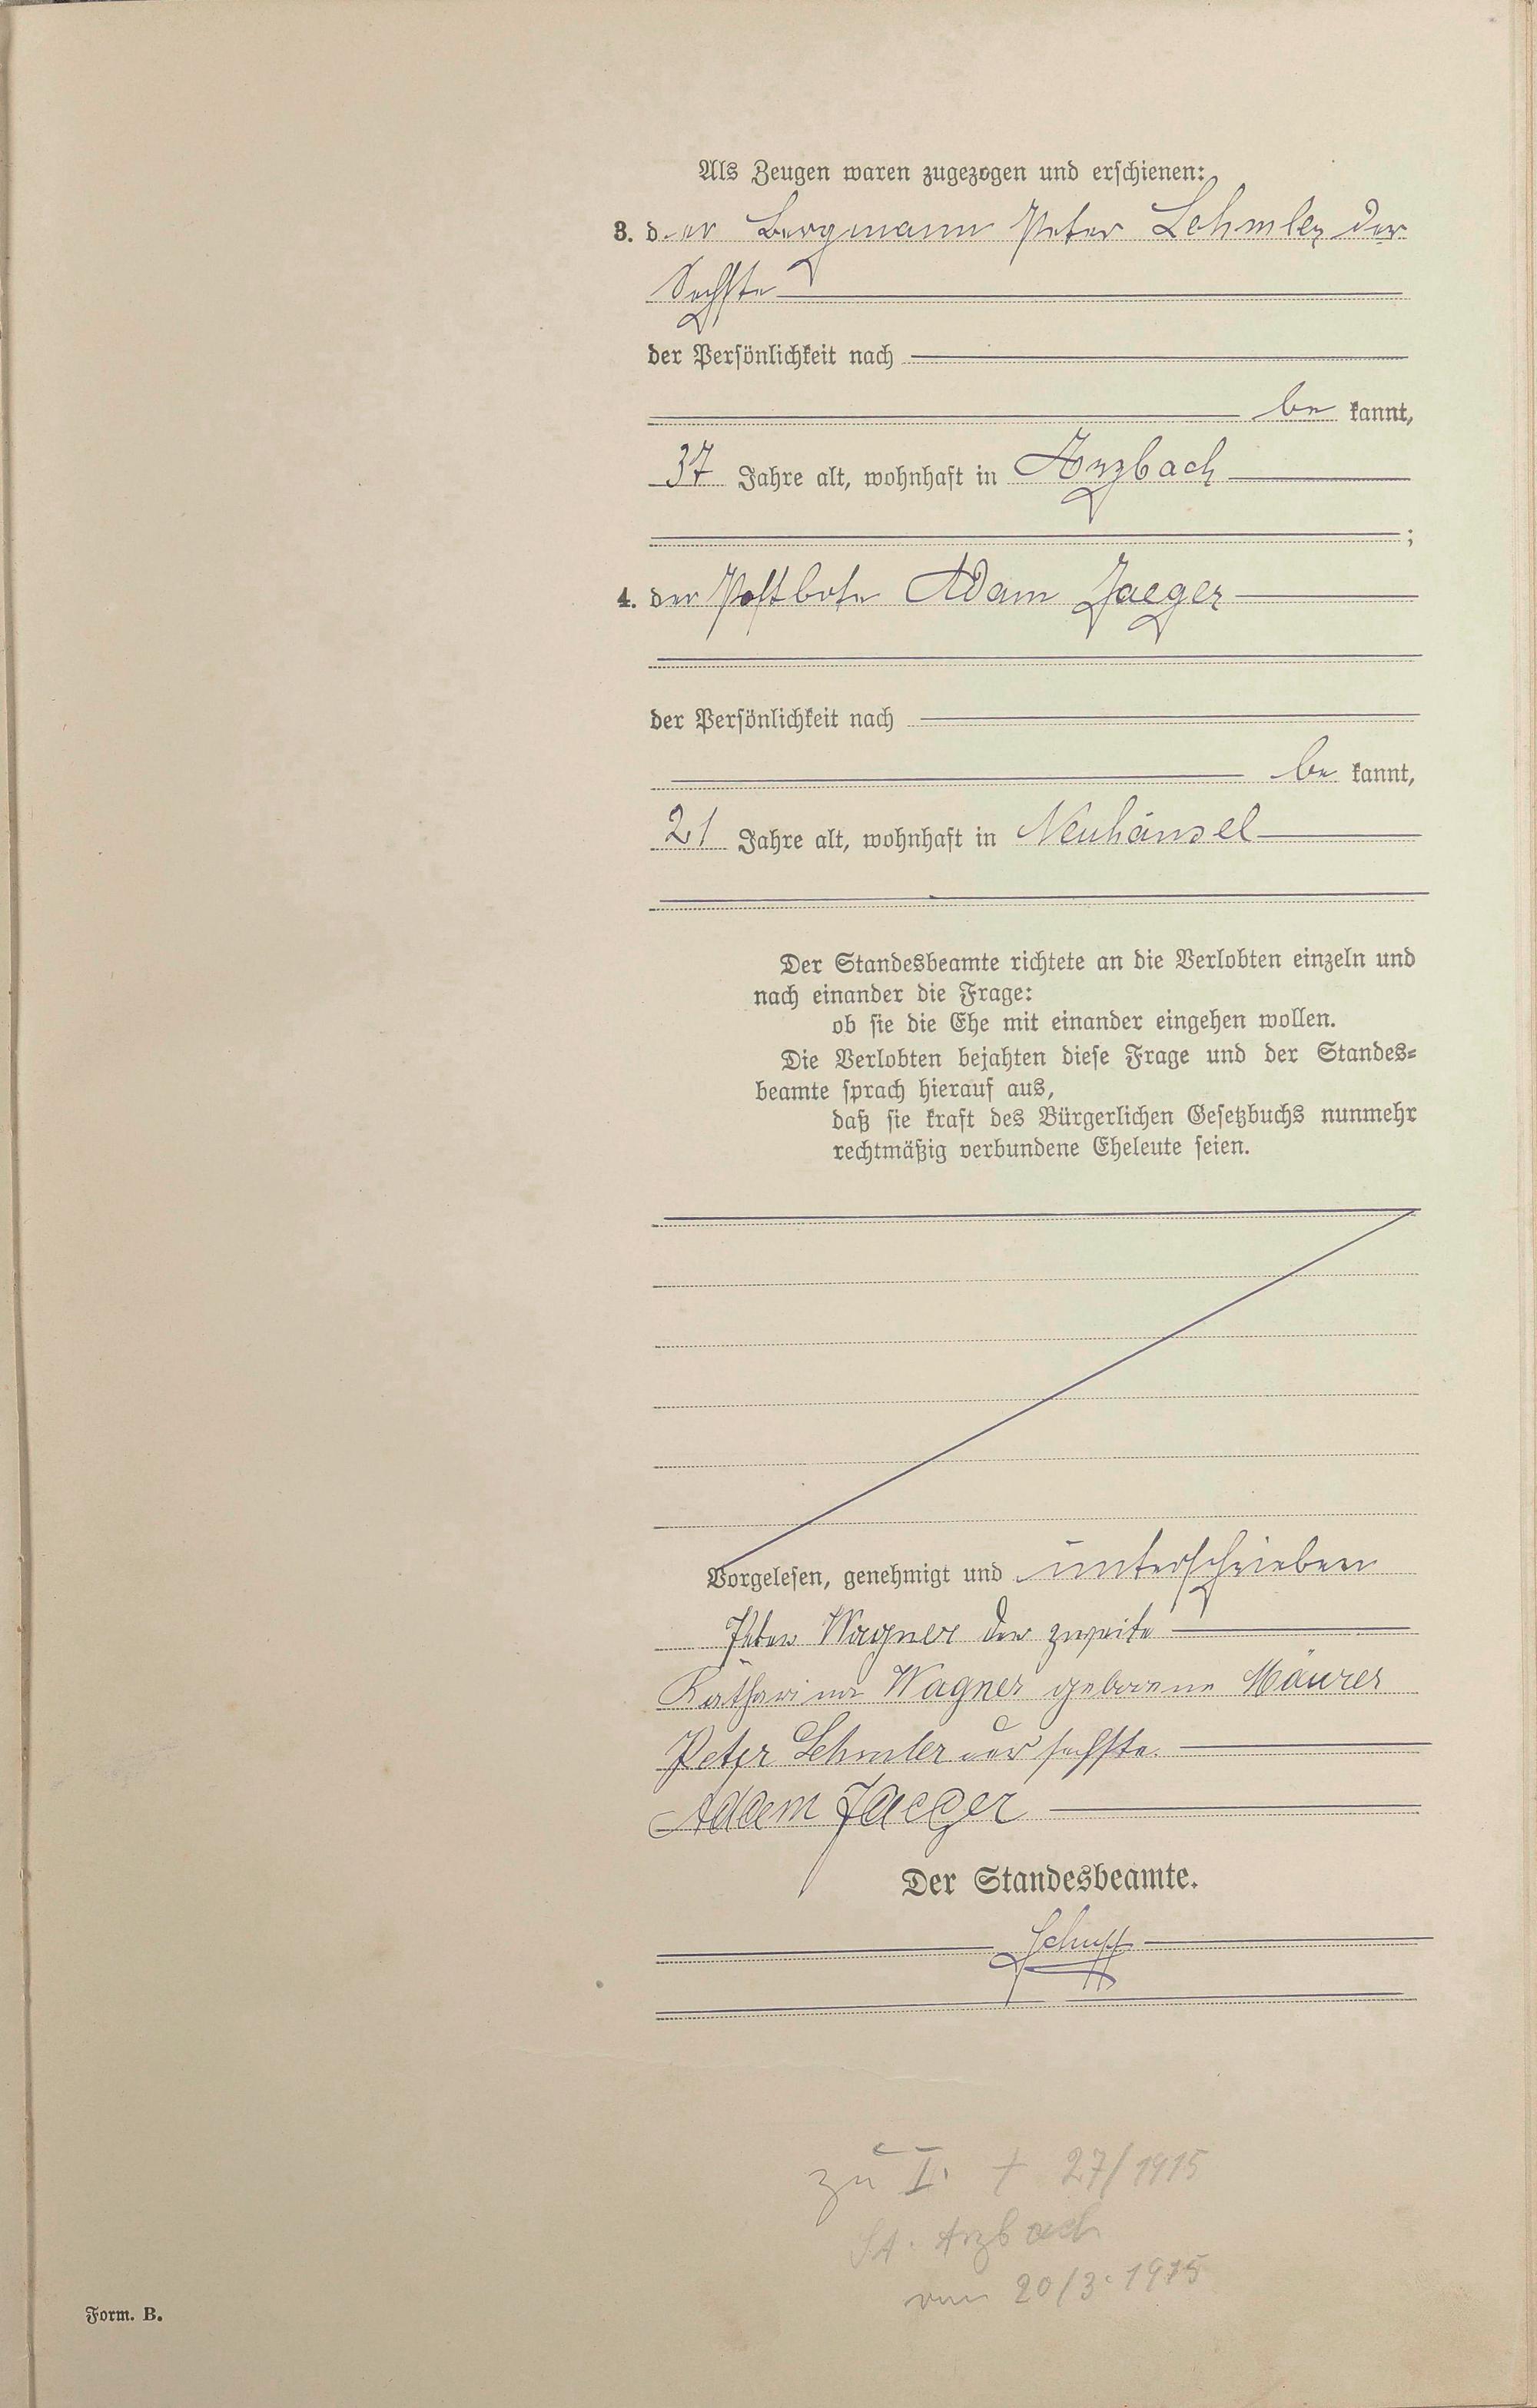 Als Zeugen waren zugezogen und erschienen:
3. der Bergmann Peter Lehmler der
Sechste
der Persönlichkeit nach
be kannt,
37 Jahre alt, wohnhaft in Arzbach
;
4. der Postbote Adam Jaeger
der Persönlichkeit nach
be kannt,
21 Jahre alt, wohnhaft in Neuhäusel
Der Standesbeamte richtete an die Verlobten einzeln und
nach einander die Frage:
ob sie die Ehe mit einander eingehen wollen.
Die Verlobten bejahten diese Frage und der Standes-
beamte sprach hierauf aus,
daß sie kraft des Bürgerlichen Gesetzbuchs nunmehr
rechtmäßig verbundene Eheleute seien.
Vorgelesen, genehmigt und unterschrieben
Peter Wagner der zweite
Katharina Wagner geborene Mäurer
Peter Lehmler der sechste.
Adam Jaeger
Der Standesbeamte.
Schupp
zu I. † 27/1915
St. Arzbach
vom 20/3. 1915
Form. B.